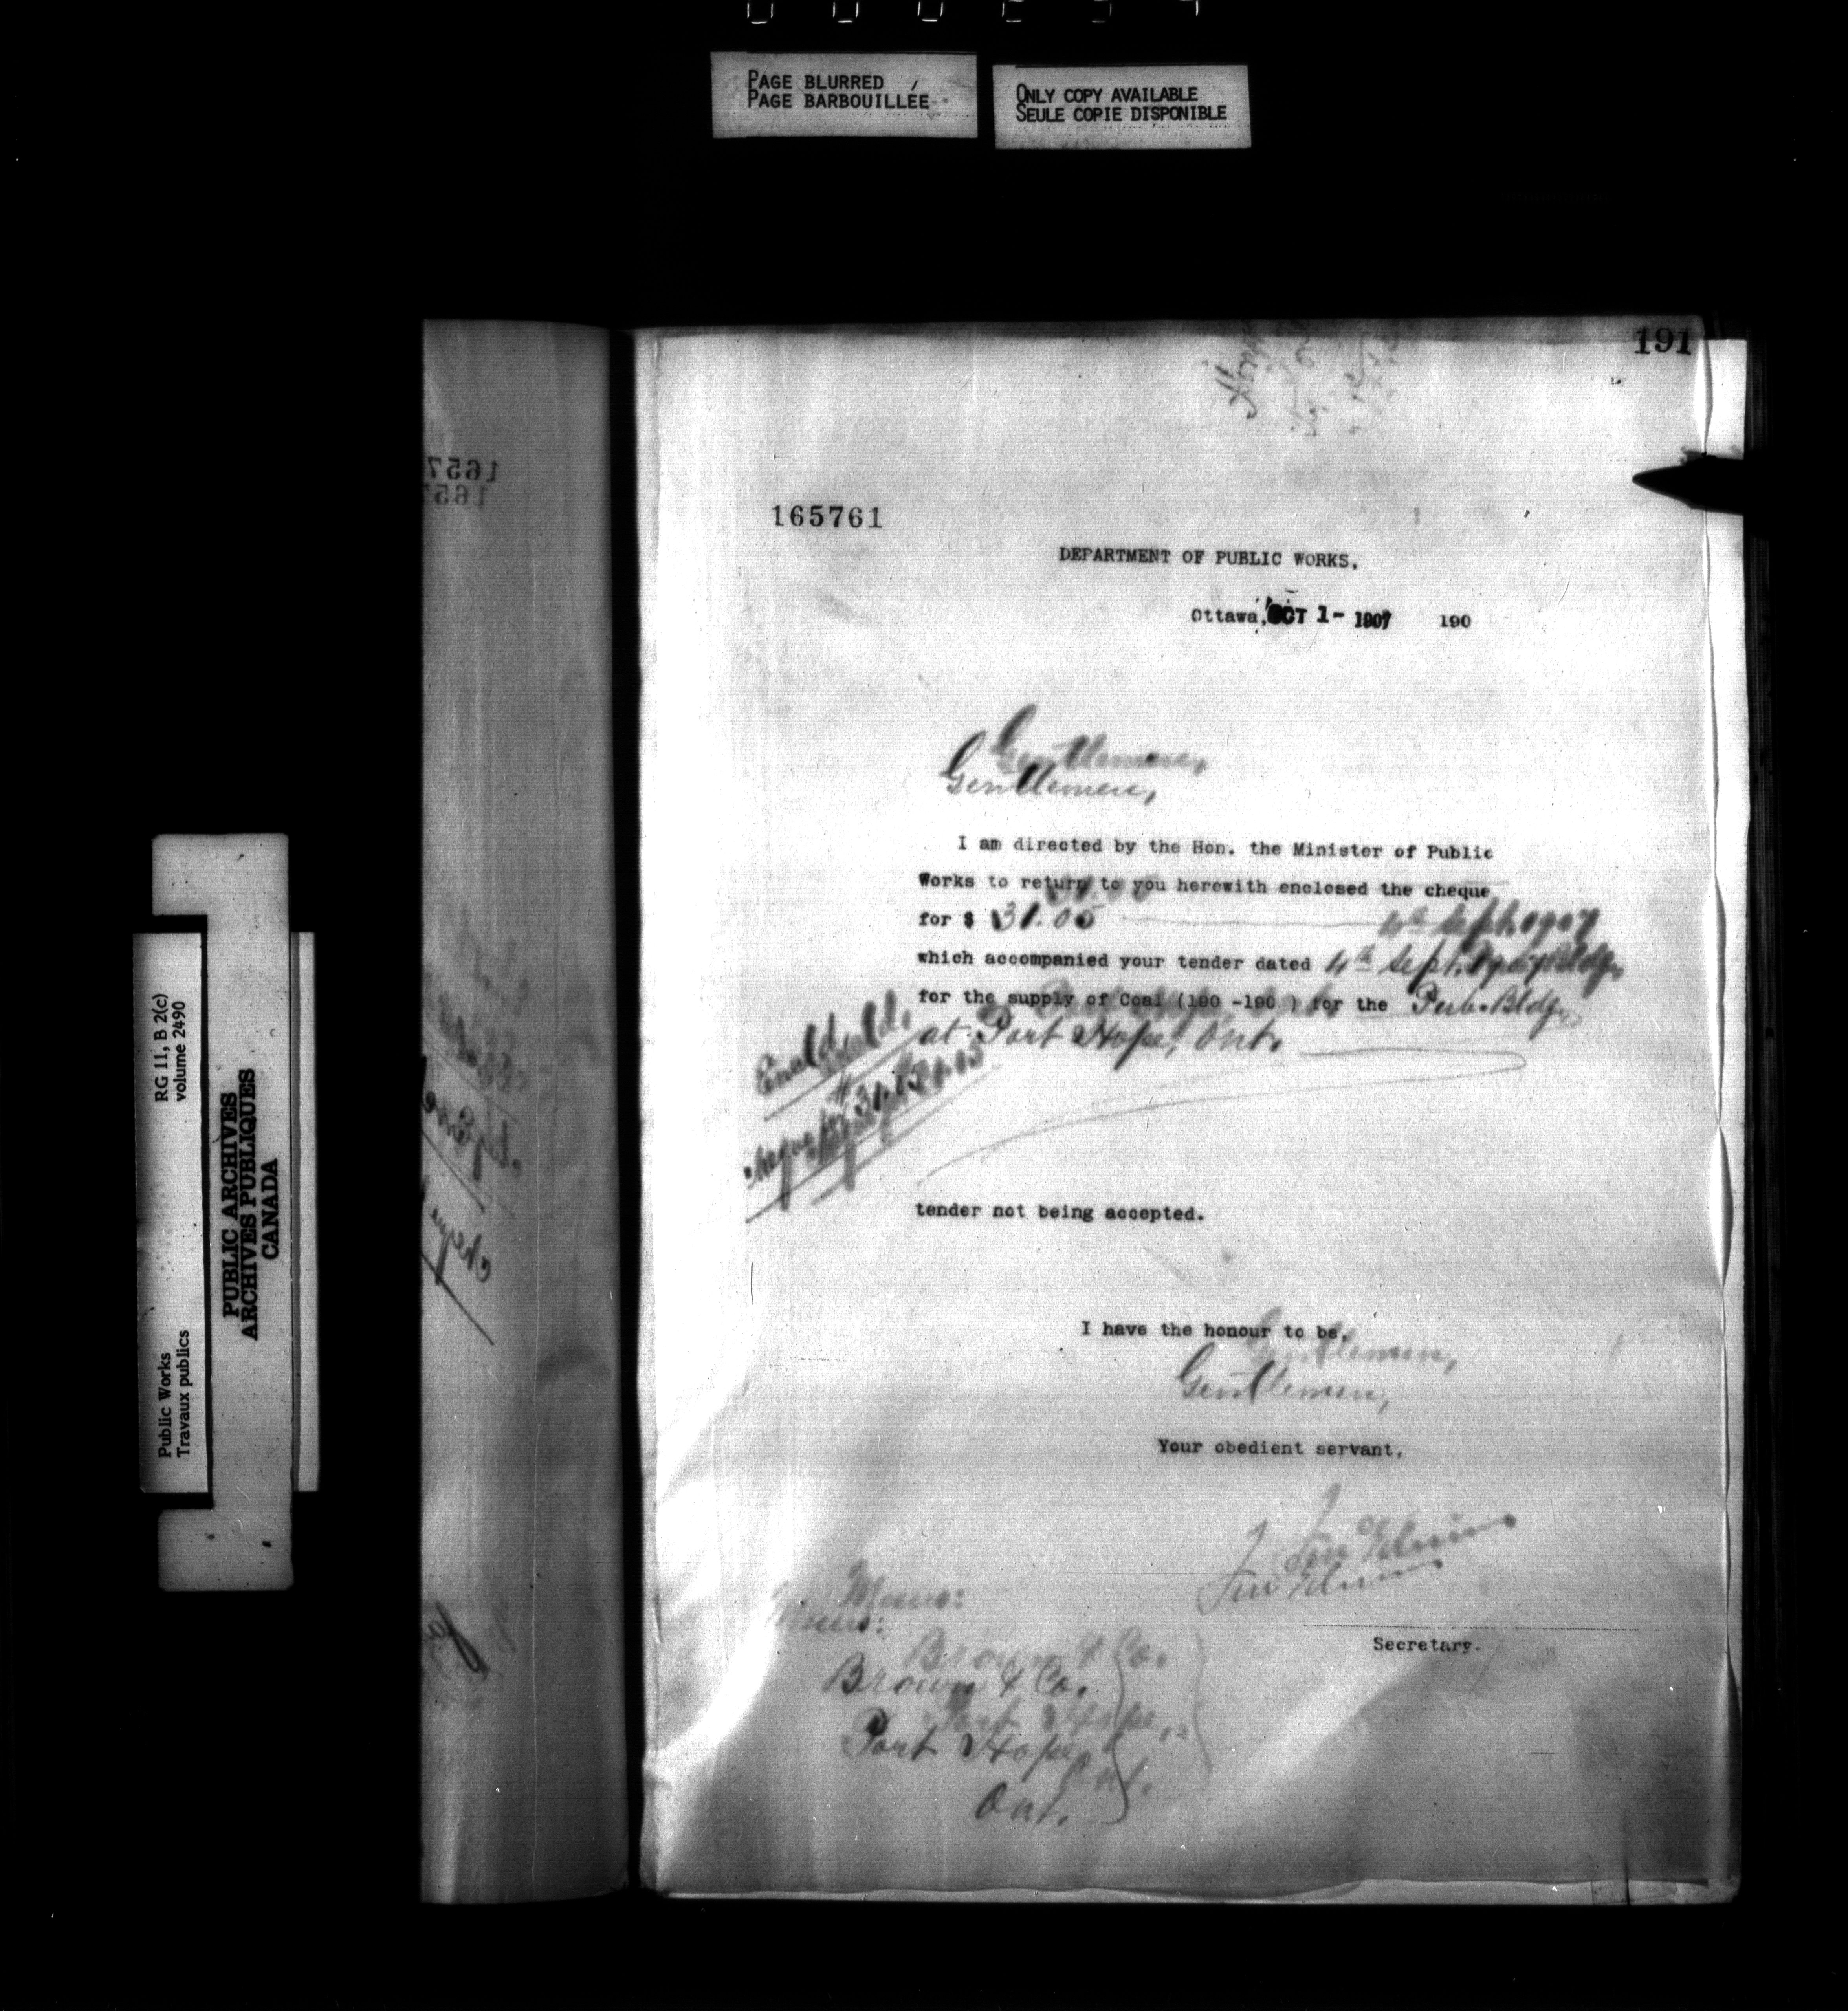 PAGE BLURRED
PAGE BARBOUILLÉE
ONLY COPY AVAILABLE
SEULE COPIE DISPONIBLE
191
165761
DEPARTMENT OF PUBLIC WORKS.
Ottawa, OCT 1- 1907 190
Gentlemen,
I am directed by the Hon. the Minister of Public
Works to return to you herewith enclosed the cheque
for $ 31.05
which accompanied your tender dated 4th Sept. 1907
for the supply of Coal (190 -190 ) for the Pub. Bldg.,
at Port Hope, Ont.
Encld.
Cheque for $31.05
tender not being accepted.
I have the honour to be,
Gentlemen,
Your obedient servant.
Secretary.
Messrs:
Brown & Co.
Port Hope,
Ont.
Public Works
Travaux publics
RG 11, B 2(c)
volume 2490
PUBLIC ARCHIVES
ARCHIVES PUBLIQUES
CANADA